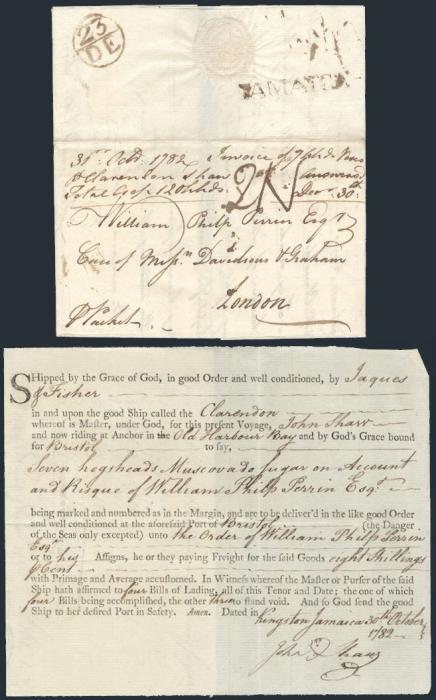 23
DE
JAMAICA
31st Octr. 1782 Invoice of 7 hhds
Clarendon Shaw
Total 120 hhds. Decr. 30th
2N
To William Philp Perrin Esqr
Care of Messrs Davidsons & Graham
London
Packet
SHipped by the Grace of God, in good Order and well conditioned, by Jaques
& Fisher
in and upon the good Ship called the Clarendon
whereof is Master, under God, for this present Voyage, John Shaw
and now riding at Anchor in the Old Harbour Bay and by God's Grace bound
for Bristol to say,
Seven hogsheads Muscovado Sugar on Account
and Risque of William Philp Perrin Esqr.
being marked and numbered as in the Margin, and are to be deliver'd in the like good Order
and well conditioned at the aforesaid Port of Bristol (the Danger
of the Seas only excepted) unto the Order of William Philp Perrin
Esqr.
or to his Assigns, he or they paying Freight for the said Goods eight Shillings
Cent
with Primage and Average accustomed. In Witness whereof the Master or Purser of the said
Ship hath affirmed to four Bills of Lading, all of this Tenor and Date; the one of which
four Bills being accomplished, the other three to stand void. And so God send the good
Ship to her desired Port in Safety. Amen. Dated in Kingston Jamaica 30th October
1782
John Shaw